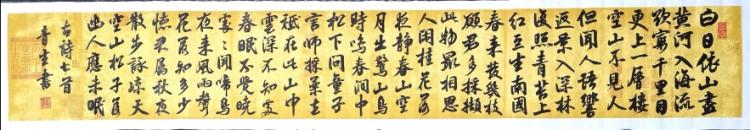 白日依山盡
黄河入海流
欲窮千里目
更上一層樓
空山不見人
但聞人語響
返景入深林
復照青苔上
红豆生南國
春来發幾枝
願君多採擷
此物最相思
人闲桂花落
夜静春山空
月出驚山鳥
時鳴春澗中
松下問童子
言師採藥去
祗在此山中
雲深不知處
春眠不覺曉
處々聞啼鳥
夜来風雨聲
花落知多少
懷君屬秋夜
散步詠凉天
空山松子落
幽人應未眠
古詩七首
書